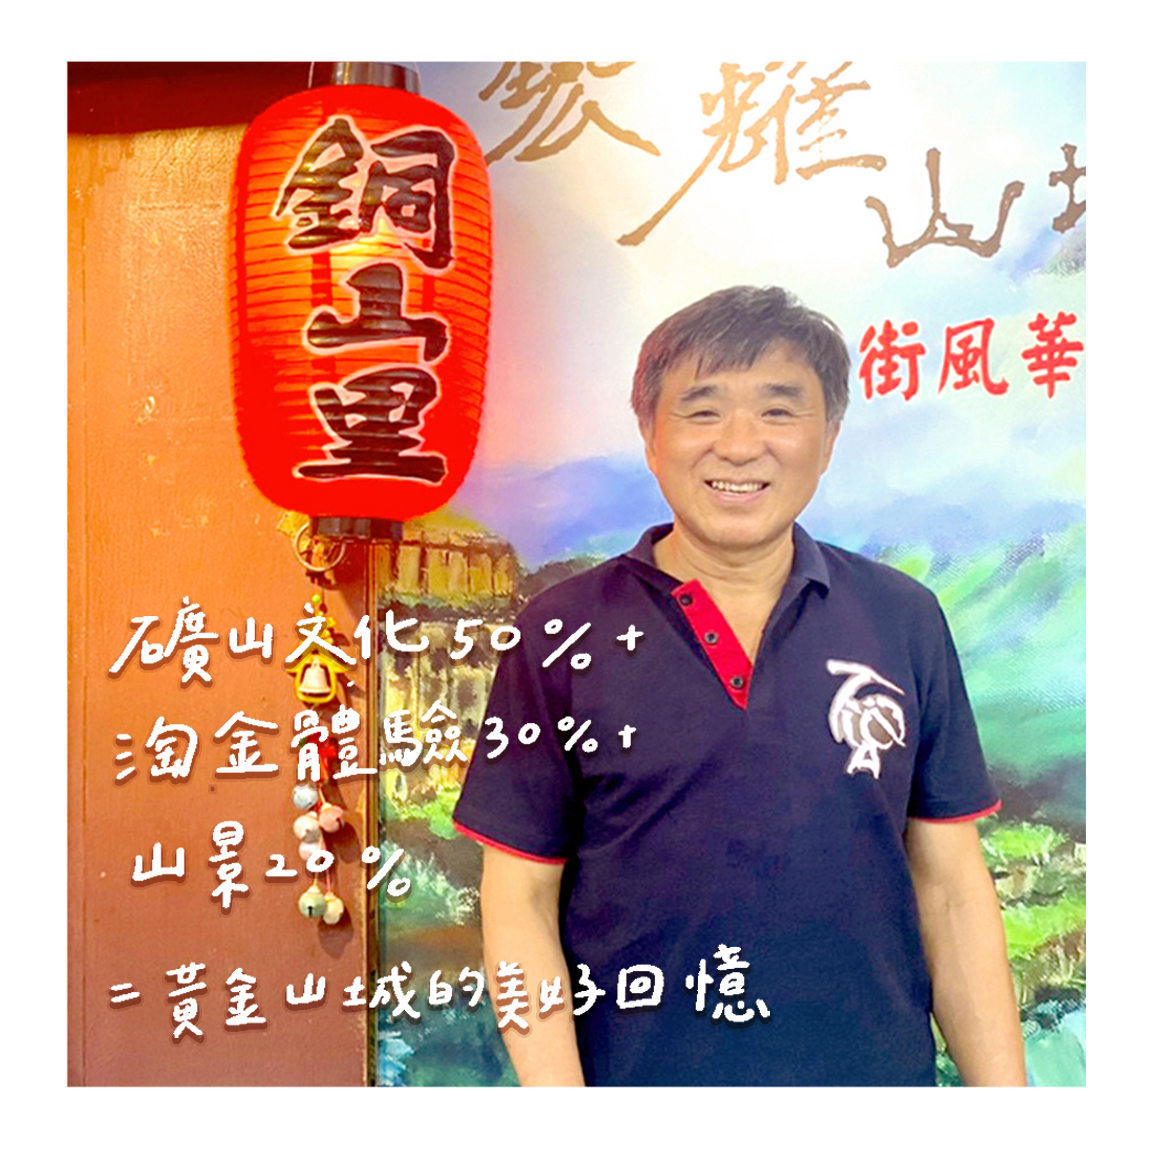 銅山里
耀山
街風華
礦山文化50%+
淘金體驗30%+
山景20%
=黃金山城的美好回憶